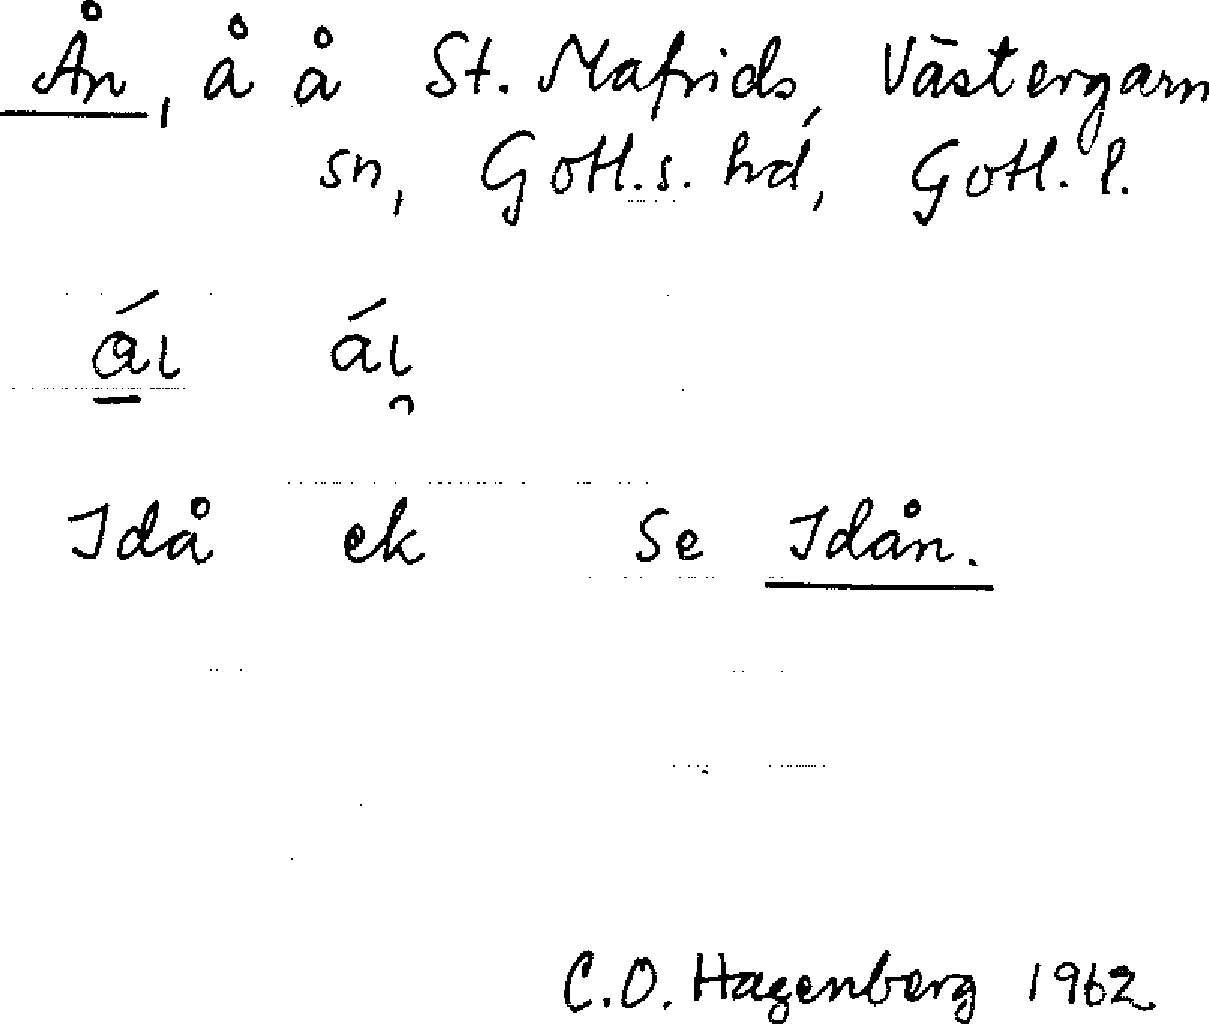 Ån, å å St. Mafrids, Västergarn
sn, Gotl.s. hd, Gotl. l.
ál ál
Idå ek se Idån.
C.O. Hagenberg 1962